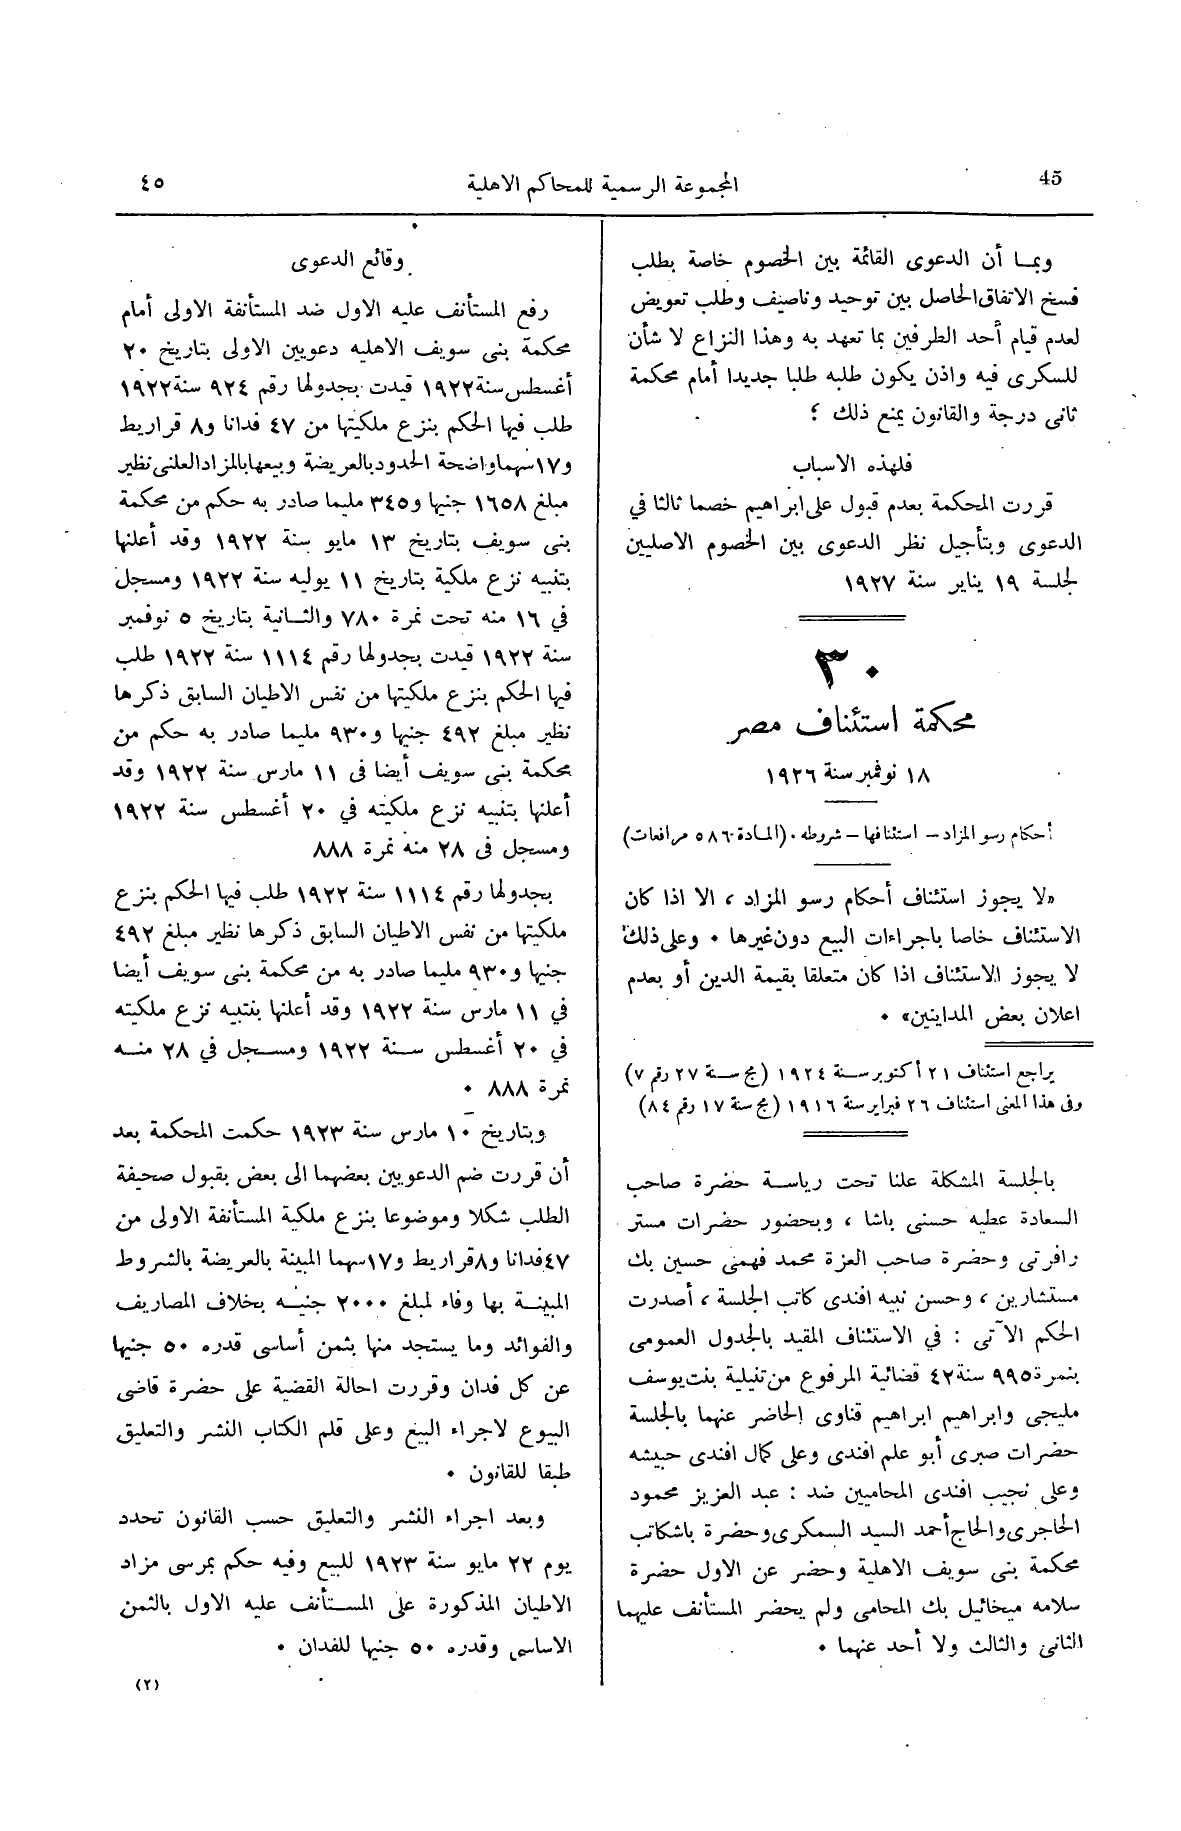 45
المجموعة الرسمية للمحاكم الاهلية
٤٥
وبما أن الدعوى القائمة بين الخصوم خاصة بطلب
فسخ الاتفاق الحاصل بين توحيد وناصيف وطلب تعويض
لعدم قيام أحد الطرفين بما تعهد به وهذا النزاع لا شأن
للسكرى فيه واذن يكون طلبه طلبا جديدا أمام محكمة
ثانى درجة والقانون يمنع ذلك ؛
فلهذه الاسباب
قررت المحكمة بعدم قبول على ابراهيم خصما ثالثا في
الدعوى وبتأجيل نظر الدعوى بين الخصوم الاصليين
لجلسة ١٩ يناير سنة ١٩٢٧
٣٠
محكمة استئناف مصر
١٨ نوفمبر سنة ١٩٢٦
أحكام رسو المزاد – استئنافها – شروطه ٠ (المادة ٥٨٦ مرافعات)
«لا يجوز استئناف أحكام رسو المزاد ، الا اذا كان
الاستئناف خاصا باجراءات البيع دون غيرها ٠ وعلى ذلك
لا يجوز الاستئناف اذا كان متعلقا بقيمة الدين أو بعدم
اعلان بعض المداينين» ٠
يراجع استئناف ٢١ أكتوبر سنة ١٩٢٤ (مج سنة ٢٧ رقم ٧)
وفى هذا المعنى استئناف ٢٦ فبراير سنة ١٩١٦ (مج سنة ١٧ رقم ٨٤)
بالجلسة المشكلة علنا تحت رياسة حضرة صاحب
السعادة عطيه حسنى باشا ، وبحضور حضرات مستر
رافرتى وحضرة صاحب العزة محمد فهمى حسين بك
مستشارين ، وحسن نبيه افندى كاتب الجلسة ، أصدرت
الحكم الآتى : في الاستئناف المقيد بالجدول العمومى
بنمرة ٩٩٥ سنة ٤٢ قضائية المرفوع من تنيلية بنت يوسف
مليجى وابراهيم ابراهيم قناوى الحاضر عنهما بالجلسة
حضرات صبرى أبو علم افندى وعلى كمال افندى حبيشه
وعلى نجيب افندى المحاميين ضد : عبد العزيز محمود
الحاجرى والحاج أحمد السيد السمكرى وحضرة باشكاتب
محكمة بنى سويف الاهلية وحضر عن الاول حضرة
سلامه ميخائيل بك المحامى ولم يحضر المستأنف عليهما
الثانى والثالث ولا أحد عنهما ٠
وقائع الدعوى
رفع المستأنف عليه الاول ضد المستأنفة الاولى أمام
محكمة بنى سويف الاهليه دعويين الاولى بتاريخ ٢٠
أغسطس سنة ١٩٢٢ قيدت بجدولها رقم ٩٢٤ سنة ١٩٢٢
طلب فيها الحكم بنزع ملكيتها من ٤٧ فدانا و٨ قراريط
و١٧ سهما واضحة الحدود بالعريضة وبيعها بالمزاد العلنى نظير
مبلغ ١٦٥٨ جنيها و٣٤٥ مليما صادر به حكم من محكمة
بنى سويف بتاريخ ١٣ مايو سنة ١٩٢٢ وقد أعلنها
بتنبيه نزع ملكية بتاريخ ١١ يوليه سنة ١٩٢٢ ومسجل
في ١٦ منه تحت نمرة ٧٨٠ والثانية بتاريخ ٥ نوفمبر
سنة ١٩٢٢ قيدت بجدولها رقم ١١١٤ سنة ١٩٢٢ طلب
فيها الحكم بنزع ملكيتها من نفس الاطيان السابق ذكرها
نظير مبلغ ٤٩٢ جنيها و٩٣٠ مليما صادر به حكم من
محكمة بنى سويف أيضا فى ١١ مارس سنة ١٩٢٢ وقد
أعلنها بتنبيه نزع ملكيته في ٢٠ أغسطس سنة ١٩٢٢
ومسجل فى ٢٨ منه نمرة ٨٨٨
بجدولها رقم ١١١٤ سنة ١٩٢٢ طلب فيها الحكم بنزع
ملكيتها من نفس الاطيان السابق ذكرها نظير مبلغ ٤٩٢
جنيها و٩٣٠ مليما صادر به من محكمة بنى سويف أيضا
في ١١ مارس سنة ١٩٢٢ وقد أعلنها بتنبيه نزع ملكيته
في ٢٠ أغسطس سنة ١٩٢٢ ومسجل في ٢٨ منه
نمرة ٨٨٨ ٠
وبتاريخ ١٠ مارس سنة ١٩٢٣ حكمت المحكمة بعد
أن قررت ضم الدعويين بعضهما الى بعض بقبول صحيفة
الطلب شكلا وموضوعا بنزع ملكية المستأنفة الاولى من
٤٧ فدانا و٨ قراريط و١٧ سهما المبينة بالعريضة بالشروط
المبينة بها وفاء لمبلغ ٢٠٠٠ جنيه بخلاف المصاريف
والفوائد وما يستجد منها بثمن أساسى قدره ٥٠ جنيها
عن كل فدان وقررت احالة القضية على حضرة قاضى
البيوع لاجراء البيع وعلى قلم الكتاب النشر والتعليق
طبقا للقانون ٠
وبعد اجراء النشر والتعليق حسب القانون تحدد
يوم ٢٢ مايو سنة ١٩٢٣ للبيع وفيه حكم بمرسى مزاد
الاطيان المذكورة على المستأنف عليه الاول بالثمن
الاساسى وقدره ٥٠ جنيها للفدان ٠
(٢)